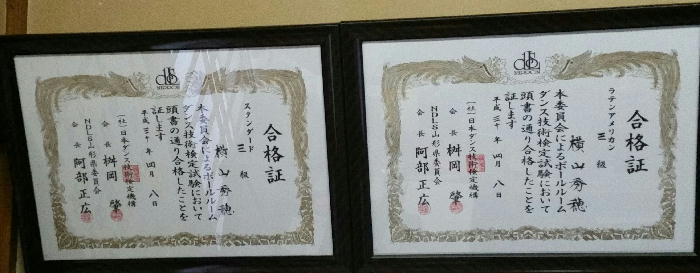 合格証
スタンダード 三級
横山秀穂
本委員会によるボールルーム
ダンス技術検定試験において
頭書の通り合格したことを
証します
平成三十年四月八日
(社)日本ダンス技術検定機構
会長 桝岡肇
NDLS山形県委員会
会長 阿部正広
合格証
ラテンアメリカン 三級
横山秀穂
本委員会によるボールルーム
ダンス技術検定試験において
頭書の通り合格したことを
証します
平成三十年四月八日
(社)日本ダンス技術検定機構
会長 桝岡肇
NDLS山形県委員会
会長 阿部正広